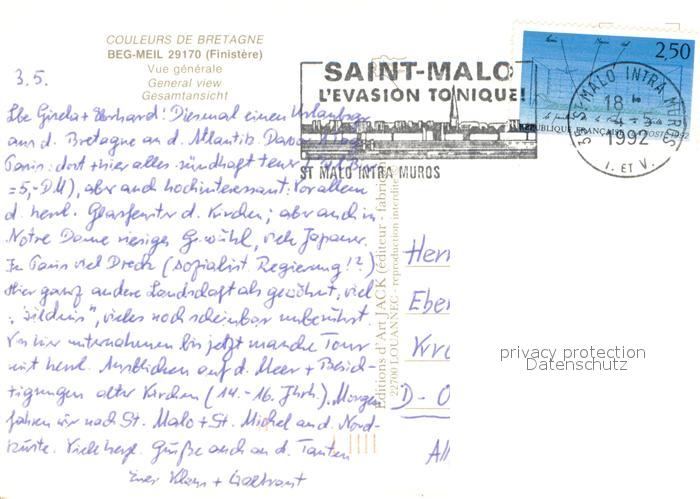 COULEURS DE BRETAGNE
BEG-MEIL 29170 (Finistère)
Vue générale
General view
Gesamtansicht
3.5.
Lbe Gisela + Eberhard! Diesmal einen Urlaubsgr.
aus d. Bretagne an d. Atlantik. Davor
Paris: dort + hier alles sündhaft teuer
= 5,- DM), aber auch hochinteressant: Vor allem
d. herrl. Glasfenster d. Kirchen; aber auch in
Notre Dame riesiges Gewühl, viele Japaner.
In Paris viel Dreck (sozialist. Regierung!?)
Hier ganz andere Landschaft als gewohnt, viel
"wildnis", vieles noch scheinbar unberührt.
Von hier unternahmen bis jetzt manche Tour
mit herrl. Ausblicken auf d. Meer + Besich-
tigungen alter Kirchen (14.-16. Jhrh.). Morgen
fahren wir nach St. Malo + St. Michel an d. Nord-
küste. Viele herzl. Grüße auch an d. Tanten
Eure Klaus + Waltraut
SAINT-MALO
L'EVASION TONIQUE!
ST MALO INTRA MUROS
2,50
RÉPUBLIQUE FRANÇAISE POSTE 1992
35 ST-MALO INTRA MUROS
18 H
4-5
1992
I. ET V.
Editions d'Art JACK (éditeur - fabricant)
22700 LOUANNEC - reproduction interdite
Herr
Eber
D-O
All
privacy protection
Datenschutz